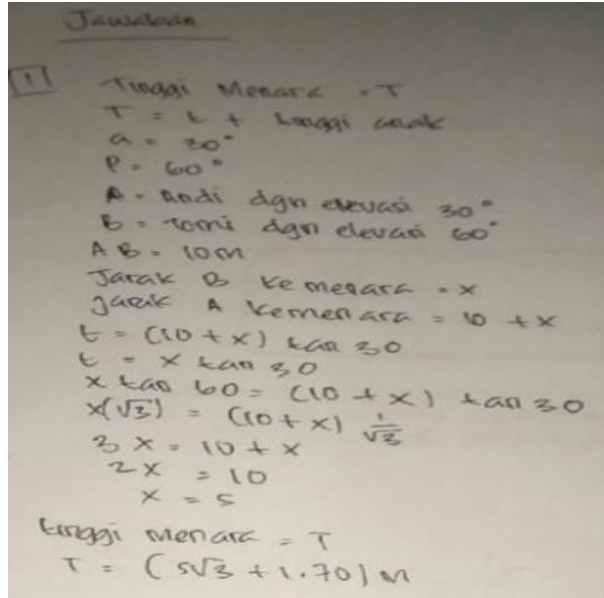 Jawaban
1 Tinggi Menara = T
T = t + tinggi anak
a = 30°
P = 60°
A = Andi dgn elevasi 30°
B = Tomi dgn elevasi 60°
AB = 10m
Jarak B ke menara = x
jarak A kemenara = 10 + x
t = (10 + x) tan 30
t = x tan 30
x tan 60 = (10 + x) tan 30
x(√3) = (10 + x) 1/√3
3x = 10 + x
2x = 10
x = 5
tinggi menara = T
T = (5√3 + 1.70) m